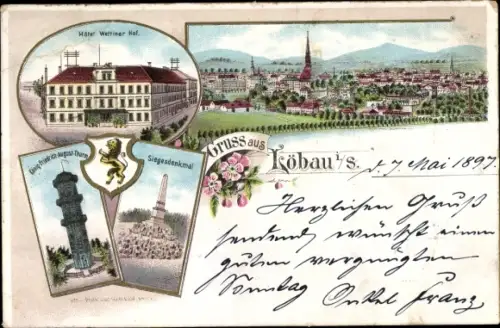 Hôtel Wettiner Hof.
König Friedrich August-Thurm
Siegesdenkmal
Gruss aus
Löbau i/S.
d. 7 Mai 1897.
Herzlichen Gruß
sendend wünscht einen
guten vergnügten
Sonntag Onkel Franz